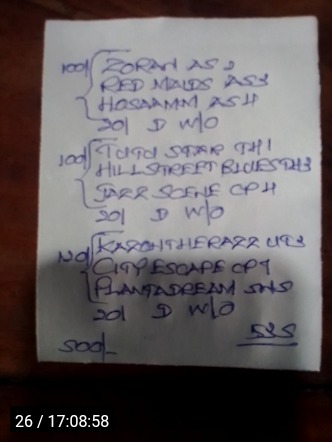 100/ ZORAN AS 2
RED MAIDS AS3
HOSAAMM AS 4
20/ D W/O
100/ TUTU STAR TH1
HILLSTREET BLUES TH3
JAZZ SCENE CP4
20/ D W/O
120/ KAZONTHERAZZ UT3
CITY ESCAPE CP7
PLANTADREAM
20/ D W/O
500/-
26 / 17:08:58